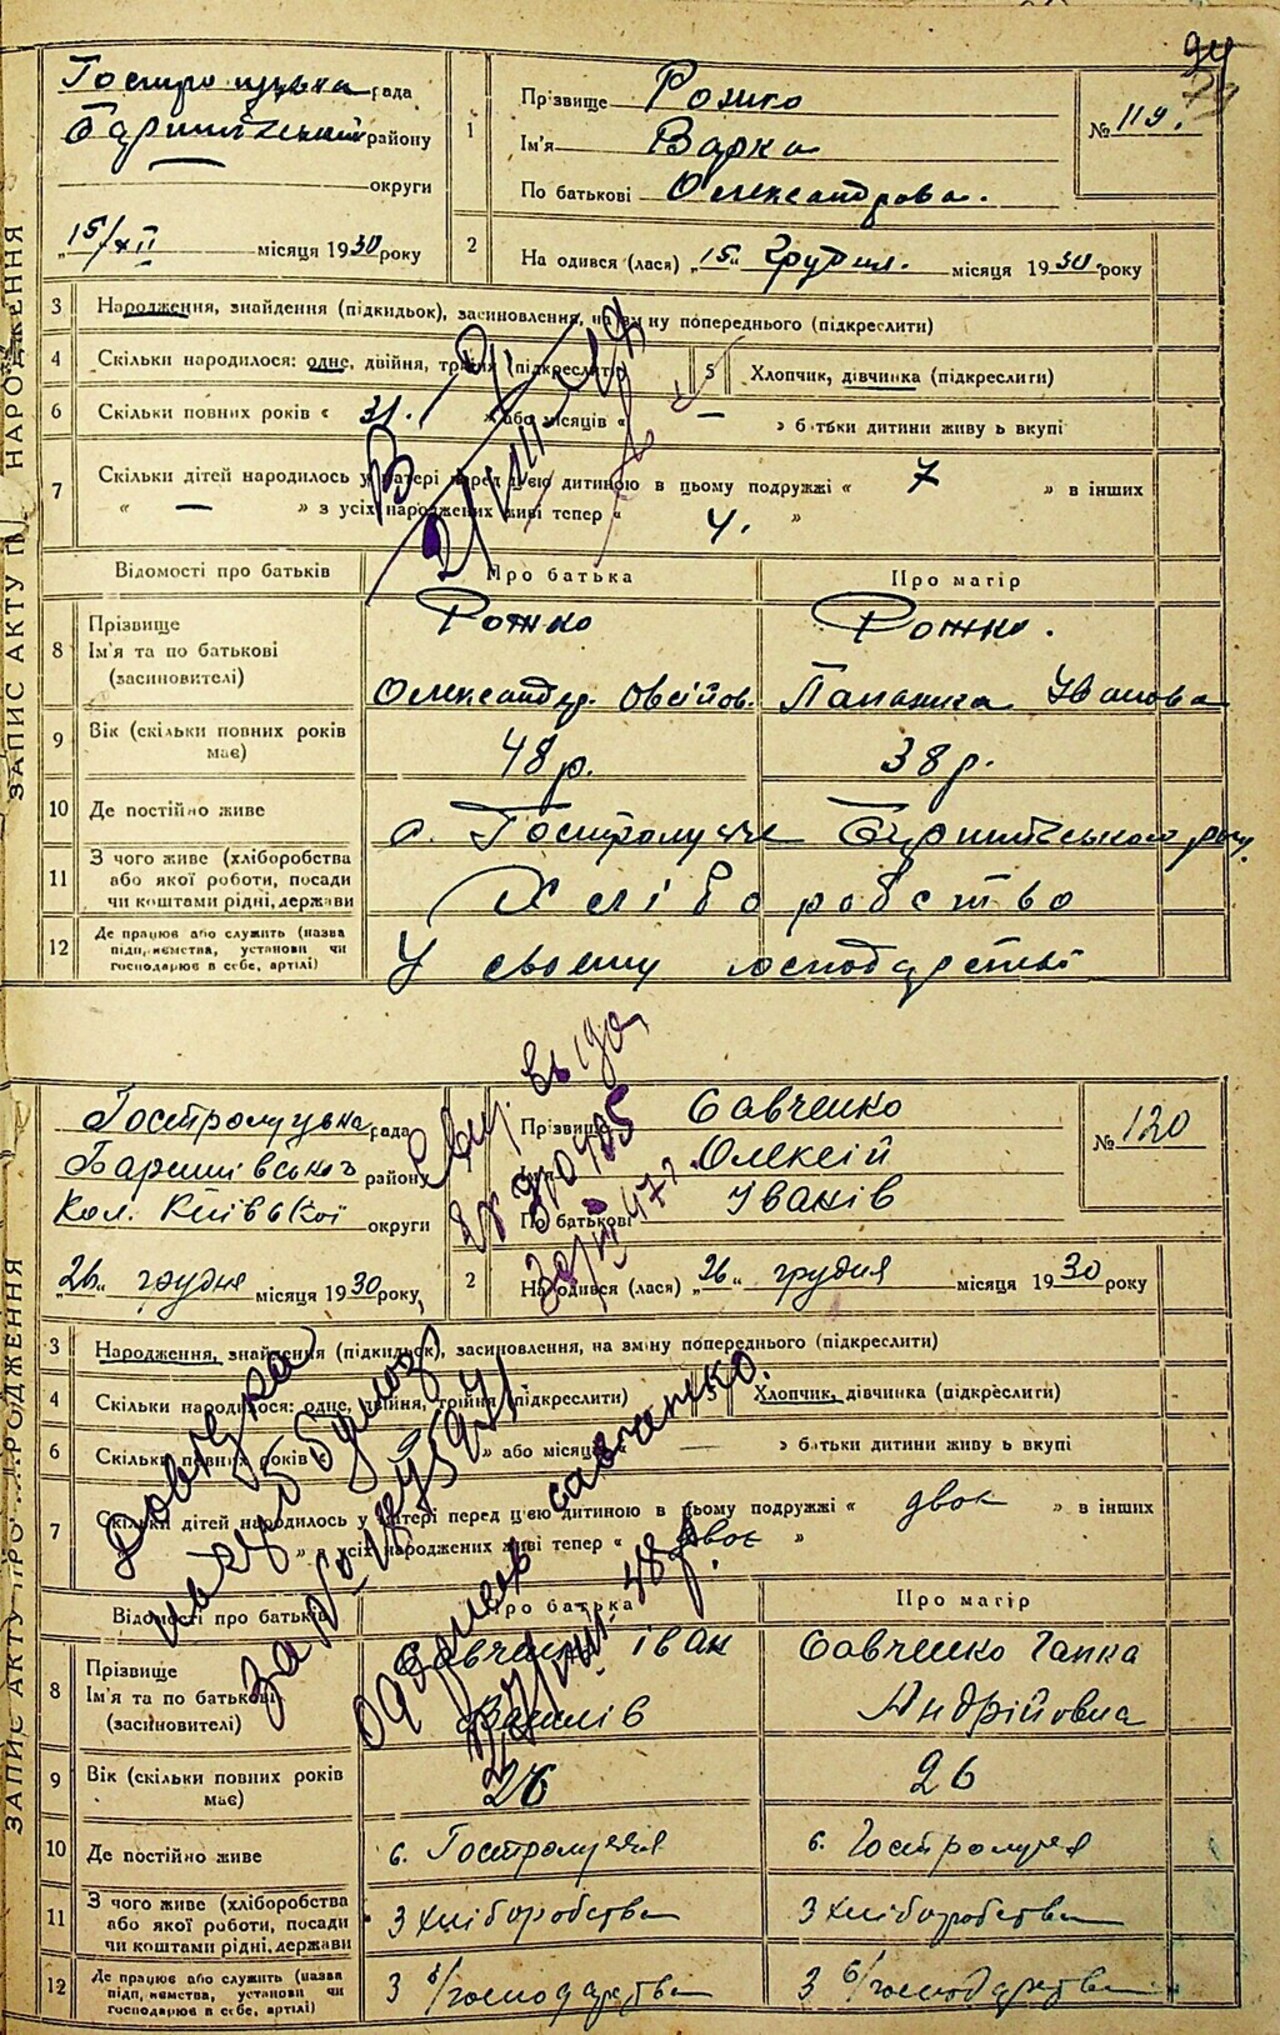 94
79
Гостролуцька рада
Баришівський району
округи
„15/XII місяця 1930 року
1
Прізвище Рожко
Ім'я Варка
По батькові Олександрова.
№ 119.
2
На одився (лася) „15" грудня. місяця 1930. року
3 Народження, знайдення (підкидьок), засиновлення, на зміну попереднього (підкреслити)
4 Скільки народилося: одне, двійня, трійня (підкреслити)
5 Хлопчик, дівчинка (підкреслити)
6 Скільки повних років « 31. » або місяців « — » батьки дитини живуть вкупі
7 Скільки дітей народилось у матері перед цією дитиною в цьому подружжі « 7 » в інших
« — » з усіх народжених живі тепер « 4. »
Відомості про батьків
Про батька
Про матір
8 Прізвище
Ім'я та по батькові
(засиновителі)
Рожко
Олександр. Овсійов.
Рожко.
Панажка Іванова
9 Вік (скільки повних років має)
48 р.
38 р.
10 Де постійно живе
с. Гостролуччє Баришівського рну.
11 З чого живе (хліборобства
або якої роботи, посади
чи коштами рідні, держави
Хліборобство
12 Де працює або служить (назва
підприємства, установи чи
господарює в себе, артілі)
У своєму господарстві
ЗАПИС АКТУ ПРО НАРОДЖЕННЯ
Гостролуцька рада
Баришівського району
Кол. Київської округи
„26" грудня місяця 1930 року
Прізвище Савченко
Ім'я Олексій
По батькові Іванів
№ 120
2
Народився (лася) „26" грудня місяця 1930 року
3 Народження, знайдення (підкидьок), засиновлення, на зміну попереднього (підкреслити)
4 Скільки народилося: одне, двійня, трійня (підкреслити)
5 Хлопчик, дівчинка (підкреслити)
6 Скільки повних років « » або місяців « — » батьки дитини живуть вкупі
7 Скільки дітей народилось у матері перед цією дитиною в цьому подружжі « двоє » в інших
» з усіх народжених живі тепер « двоє »
Відомості про батьків
Про батька
Про матір
8 Прізвище
Ім'я та по батькові
(засиновителі)
Савченко Іван
Василів
Савченко Гапка
Андрійовна
9 Вік (скільки повних років має)
26
26
10 Де постійно живе
с. Гостролуччя
с. Гостролуччя
11 З чого живе (хліборобства
або якої роботи, посади
чи коштами рідні, держави
З хліборобства
З хліборобства
12 Де працює або служить (назва
підприємства, установи чи
господарює в себе, артілі)
З с/господарства
З с/господарства
ЗАПИС АКТУ ПРО НАРОДЖЕННЯ